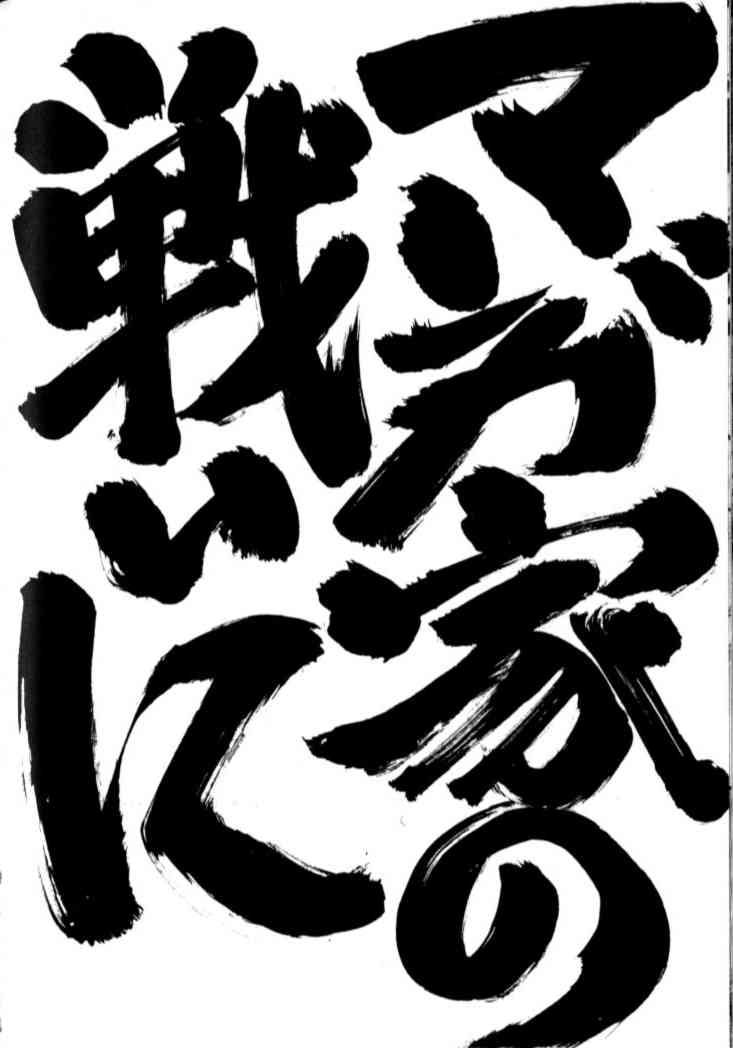 マンガ家の
戦いに